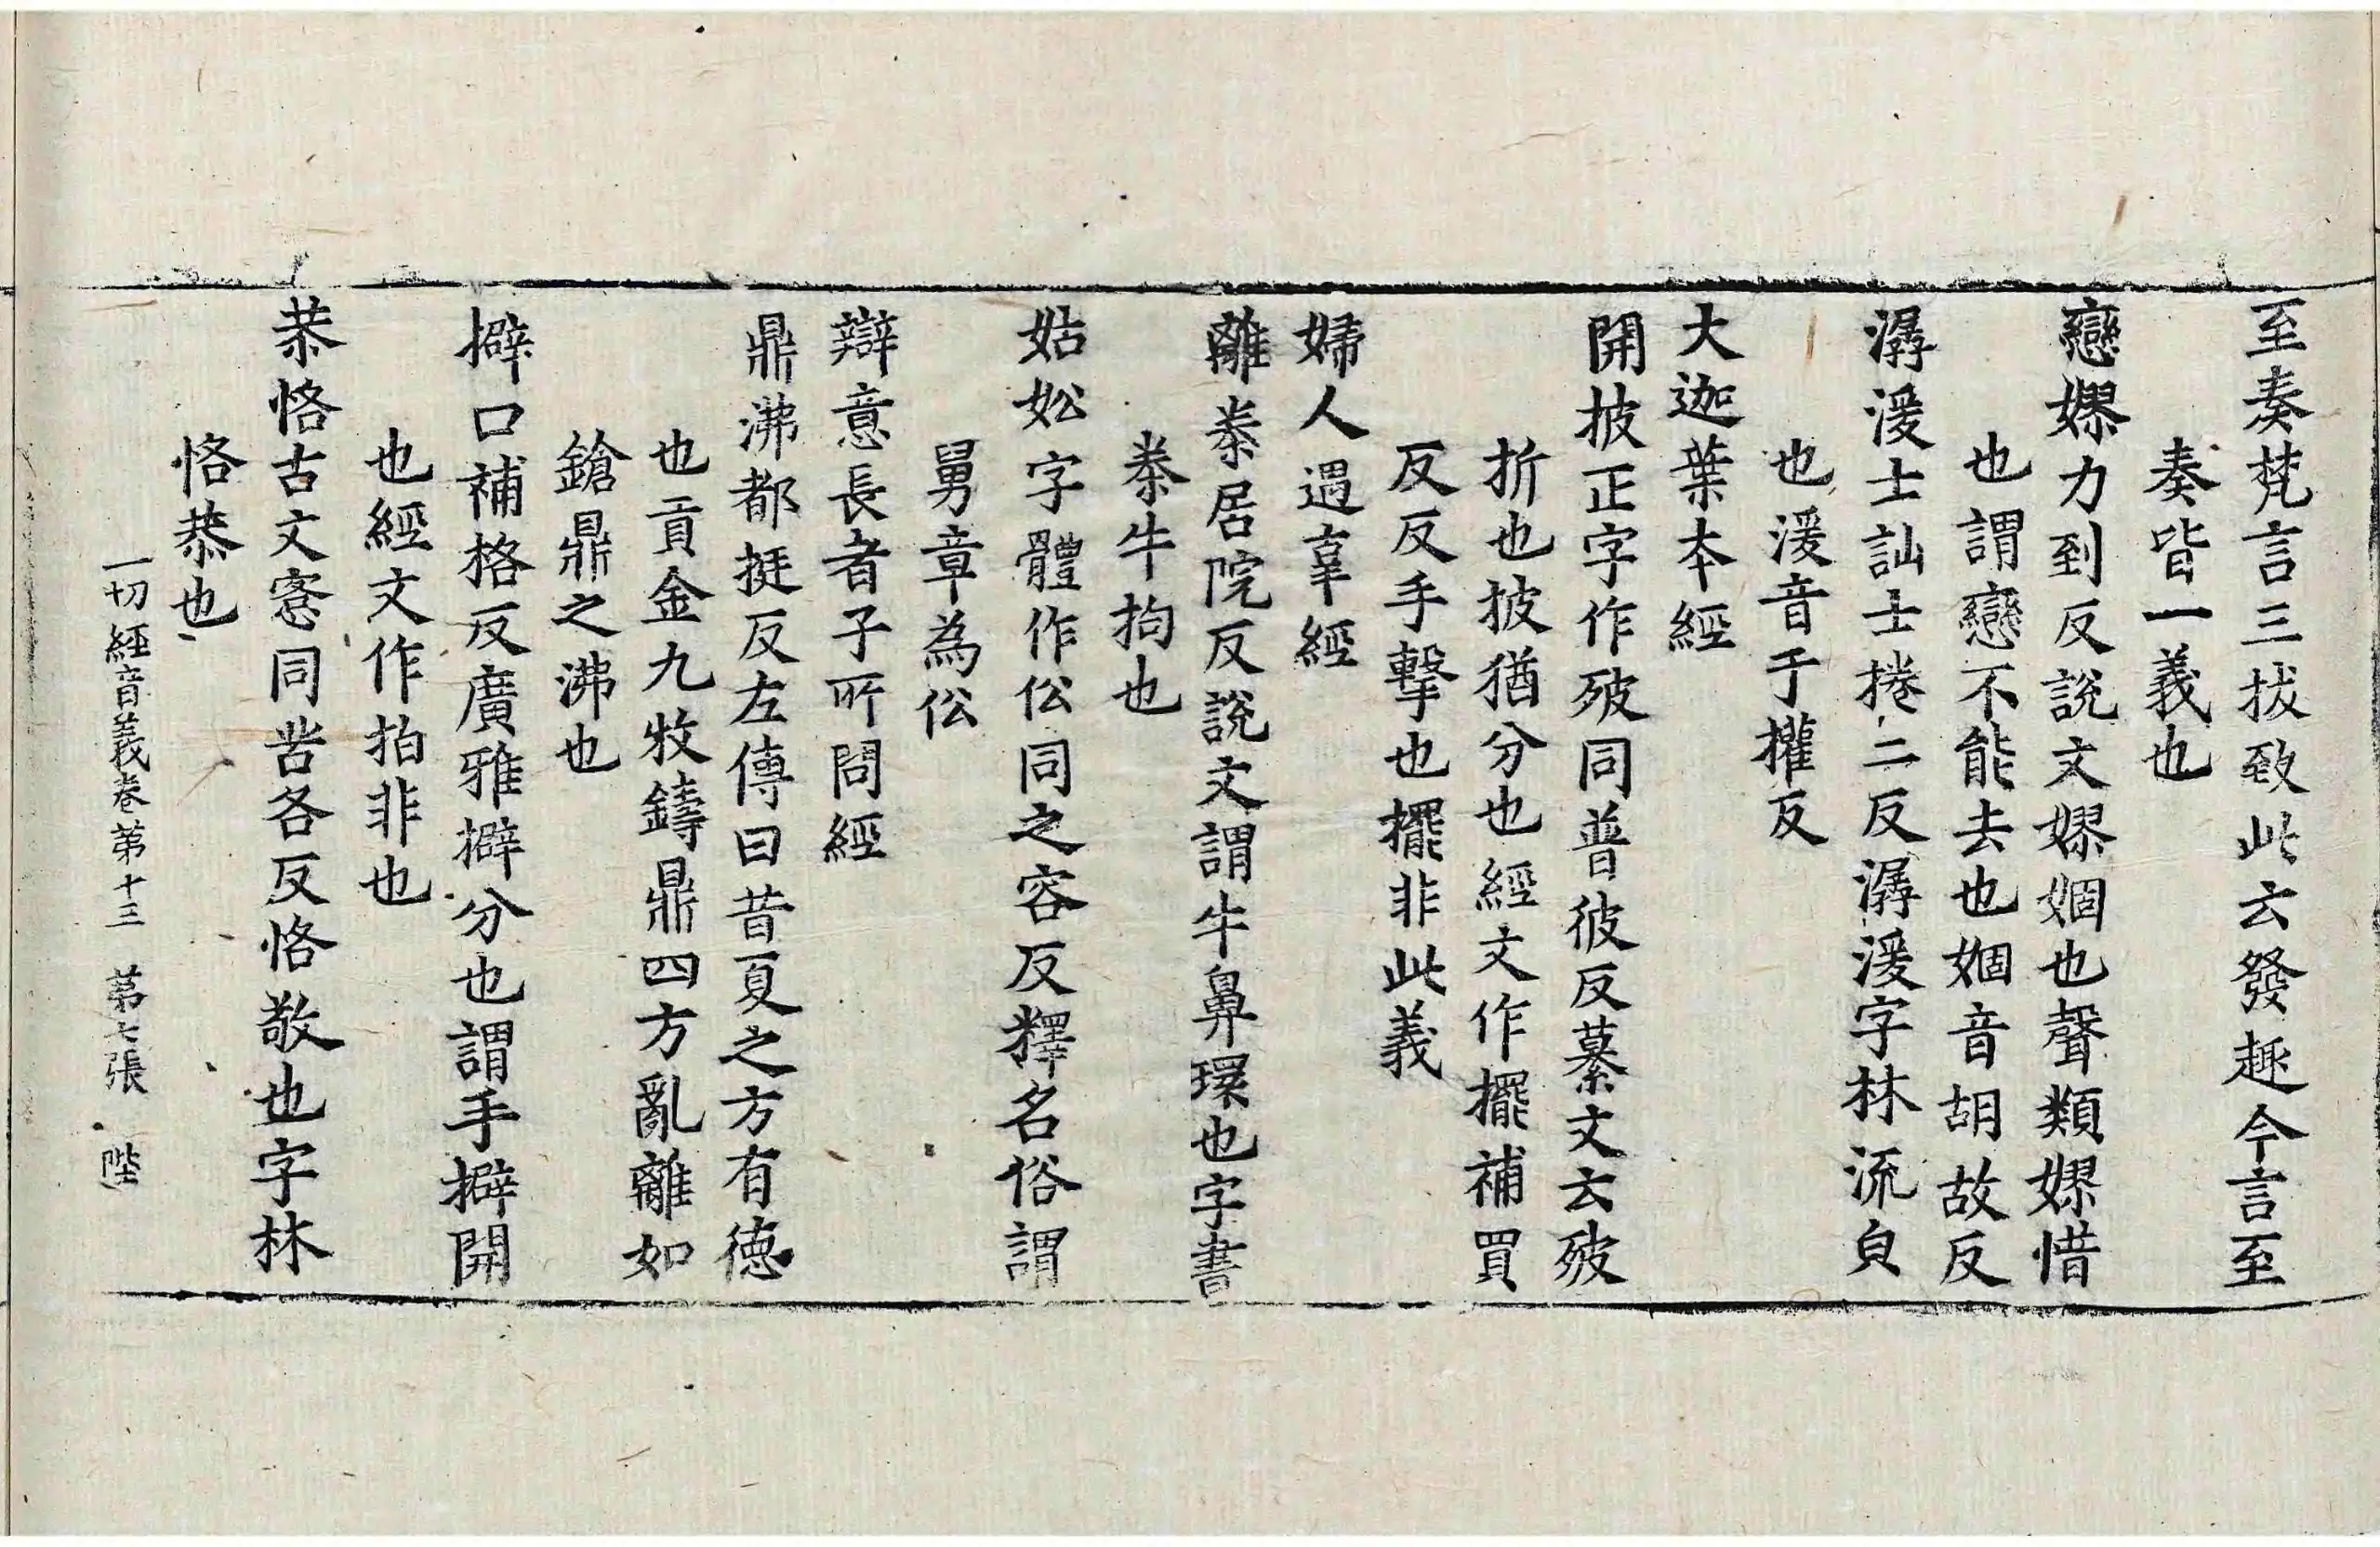 至奏梵言三拔致此云發趣今言至
奏皆一義也
戀嫪力到反說文嫪婟也聲類嫪惜
也謂戀不能去也婟音胡故反
潺湲士訕士捲二反潺湲字林流皃
也湲音于權反
大迦葉本經
開披正字作㱟同普彼反纂文云㱟
折也披猶分也經文作擺補買
反反手擊也擺非此義
婦人遇辜經
離桊居院反說文謂牛鼻環也字書
桊牛拘也
姑妐字體作伀同之容反釋名俗謂
舅章為伀
辯意長者子所問經
鼎沸都挺反左傳曰昔夏之方有德
也貢金九牧鑄鼎四方亂離如
鎗鼎之沸也
擗口補格反廣雅擗分也謂手擗開
也經文作拍非也
恭恪古文愙同苦各反恪敬也字林
恪恭也
一切經音義卷第十三 第七張 陛